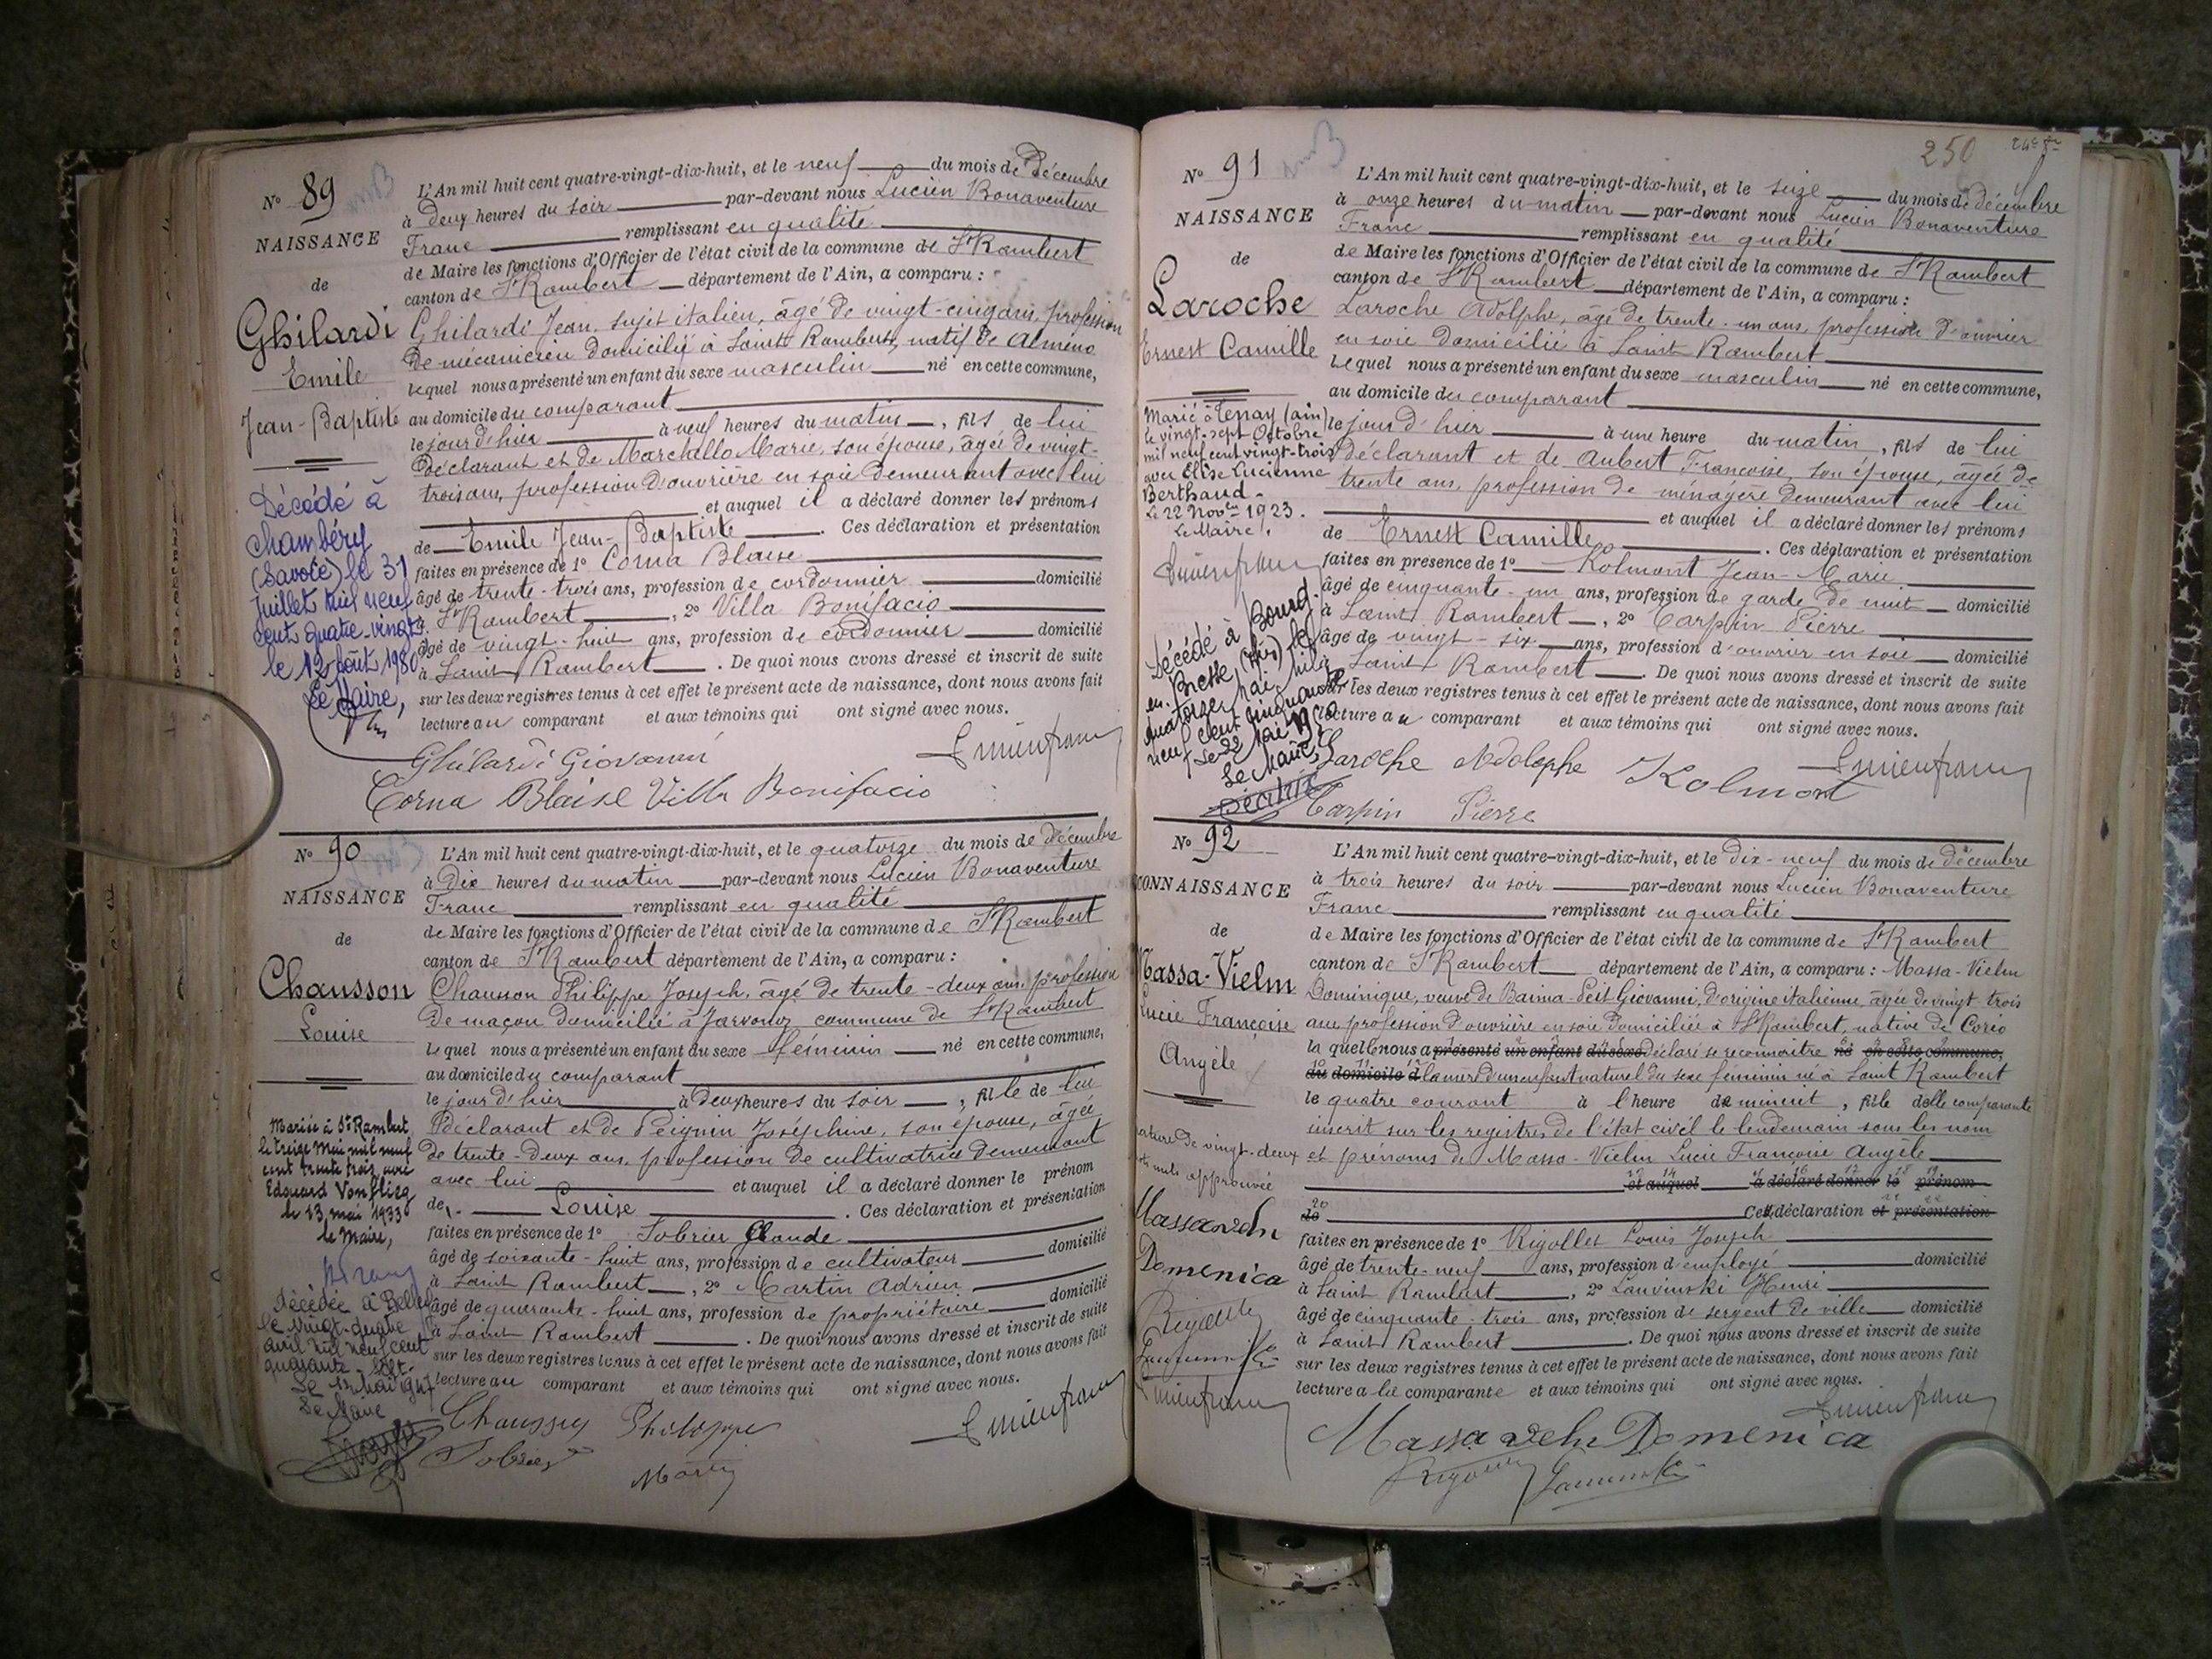 N° 89
NAISSANCE
de
Ghilardi
Emile
Jean-Baptiste
Décédé à
Chambéry
(Savoie) le 31
Juillet mil neuf
cent quatre-vingt
le 12 Août 1980
Le Maire,
L'An mil huit cent quatre-vingt-dix-huit, et le neuf du mois de Décembre
à Deux heures du soir par-devant nous Lucien Bonaventure
Franc remplissant en qualité
de Maire les fonctions d'Officier de l'état civil de la commune de St Rambert
canton de St Rambert département de l'Ain, a comparu :
Ghilardi Jean, sujet italien, âgé de vingt-cinq ans, profession
de mécanicien domicilié à Saint Rambert, natif de Almeno
lequel nous a présenté un enfant du sexe masculin né en cette commune,
au domicile du comparant
le jour d'hier à neuf heures du matin, fils de lui
déclarant et de Marchello Marie, son épouse, âgée de vingt-
trois ans, profession d'ouvrière en soie demeurant avec lui
et auquel il a déclaré donner les prénoms
de Emile Jean-Baptiste. Ces déclaration et présentation
faites en présence de 1° Corna Blaise
âgé de trente-trois ans, profession de cordonnier domicilié
à St Rambert, 2° Villa Bonifacio
âgé de vingt-huit ans, profession de cordonnier domicilié
à Saint Rambert. De quoi nous avons dressé et inscrit de suite
sur les deux registres tenus à cet effet le présent acte de naissance, dont nous avons fait
lecture au comparant et aux témoins qui ont signé avec nous.
Ghilardi Giovanni
Corna Blaise Villa Bonifacio
N° 90
NAISSANCE
de
Chausson
Louise
Mariée à St Rambert
le treize Mai mil neuf
cent trente trois avec
Edouard Vonflieg
le 13 mai 1933
le Maire,
Décédée à Belley
le vingt-quatre
avril mil neuf cent
quarante-sept.
Le 12 Mai 1947
Le Maire
L'An mil huit cent quatre-vingt-dix-huit, et le quatorze du mois de décembre
à Dix heures du matin par-devant nous Lucien Bonaventure
Franc remplissant en qualité
de Maire les fonctions d'Officier de l'état civil de la commune de St Rambert
canton de St Rambert département de l'Ain, a comparu :
Chausson Philippe Joseph, âgé de trente-deux ans, profession
de maçon domicilié à Javornoz commune de St Rambert
lequel nous a présenté un enfant du sexe féminin né en cette commune,
au domicile du comparant
le jour d'hier à Deux heures du soir, fille de lui
déclarant et de Peignin Joséphine, son épouse, âgée
de trente-deux ans, profession de cultivatrice demeurant
avec lui et auquel il a déclaré donner le prénom
de Louise. Ces déclaration et présentation
faites en présence de 1° Sobrier Claude
âgé de soixante-huit ans, profession de cultivateur domicilié
à Saint Rambert, 2° Martin Adrien
âgé de quarante-huit ans, profession de propriétaire domicilié
à Saint Rambert. De quoi nous avons dressé et inscrit de suite
sur les deux registres tenus à cet effet le présent acte de naissance, dont nous avons fait
lecture au comparant et aux témoins qui ont signé avec nous.
Philippe
Sobrier
Martin
250
N° 91
NAISSANCE
de
Laroche
Ernest Camille
Marié à Tenay (ain)
le vingt-sept Octobre
mil neuf cent vingt-trois
avec Elise Lucienne
Berthaud.
Le 22 Novbre 1923.
Le Maire.
Décédé à Bourg
en-Bresse (Ain) le
quatorze mai mil
neuf cent cinquante
Le 22 Mai 1950
Le Maire
L'An mil huit cent quatre-vingt-dix-huit, et le seize du mois de décembre
à onze heures du matin par-devant nous Lucien Bonaventure
Franc remplissant en qualité
de Maire les fonctions d'Officier de l'état civil de la commune de St Rambert
canton de St Rambert département de l'Ain, a comparu :
Laroche Adolphe, âgé de trente-un ans, profession d'ouvrier
en soie domicilié à Saint Rambert
lequel nous a présenté un enfant du sexe masculin né en cette commune,
au domicile du comparant
le jour d'hier à une heure du matin, fils de lui
déclarant et de Aubert Françoise, son épouse, âgée de
trente ans, profession de ménagère demeurant avec lui
et auquel il a déclaré donner les prénoms
de Ernest Camille. Ces déclaration et présentation
faites en présence de 1° Kolmont Jean-Marie
âgé de cinquante-un ans, profession de garde de nuit domicilié
à Saint Rambert, 2° Carpin Pierre
âgé de vingt-six ans, profession d'ouvrier en soie domicilié
à Saint Rambert. De quoi nous avons dressé et inscrit de suite
sur les deux registres tenus à cet effet le présent acte de naissance, dont nous avons fait
lecture au comparant et aux témoins qui ont signé avec nous.
Laroche Adolphe Kolmont
Carpin Pierre
N° 92
CONNAISSANCE
de
Massa-Vielm
Lucie Françoise
Angèle
L'An mil huit cent quatre-vingt-dix-huit, et le dix-neuf du mois de décembre
à trois heures du soir par-devant nous Lucien Bonaventure
Franc remplissant en qualité
de Maire les fonctions d'Officier de l'état civil de la commune de St Rambert
canton de St Rambert département de l'Ain, a comparu : Massa-Vielm
Dominique, veuve de Baima-Peit Giovanni, d'origine italienne, âgée de vingt-trois
ans, profession d'ouvrière en soie domiciliée à St Rambert, native de Corio
laquelle nous a présenté un enfant du sexe déclaré se reconnaitre né en cette commune,
au domicile d la mère d'un enfant naturel du sexe féminin né à Saint Rambert
le quatre courant à l'heure de minuit, fille d'elle comparante
inscrit sur les registres de l'état civil le lendemain sous les nom
et prénoms de Massa-Vielm Lucie Françoise Angèle
et auquel a déclaré donner le prénom
de Cette déclaration et présentation
faites en présence de 1° Rigollet Louis Joseph
âgé de trente-neuf ans, profession d'employé domicilié
à Saint Rambert, 2° Lauvinski Henri
âgé de cinquante-trois ans, profession de sergent de ville domicilié
à Saint Rambert. De quoi nous avons dressé et inscrit de suite
sur les deux registres tenus à cet effet le présent acte de naissance, dont nous avons fait
lecture a la comparante et aux témoins qui ont signé avec nous.
vingt-deux
mots nuls approuvée
Domenica
Domenica